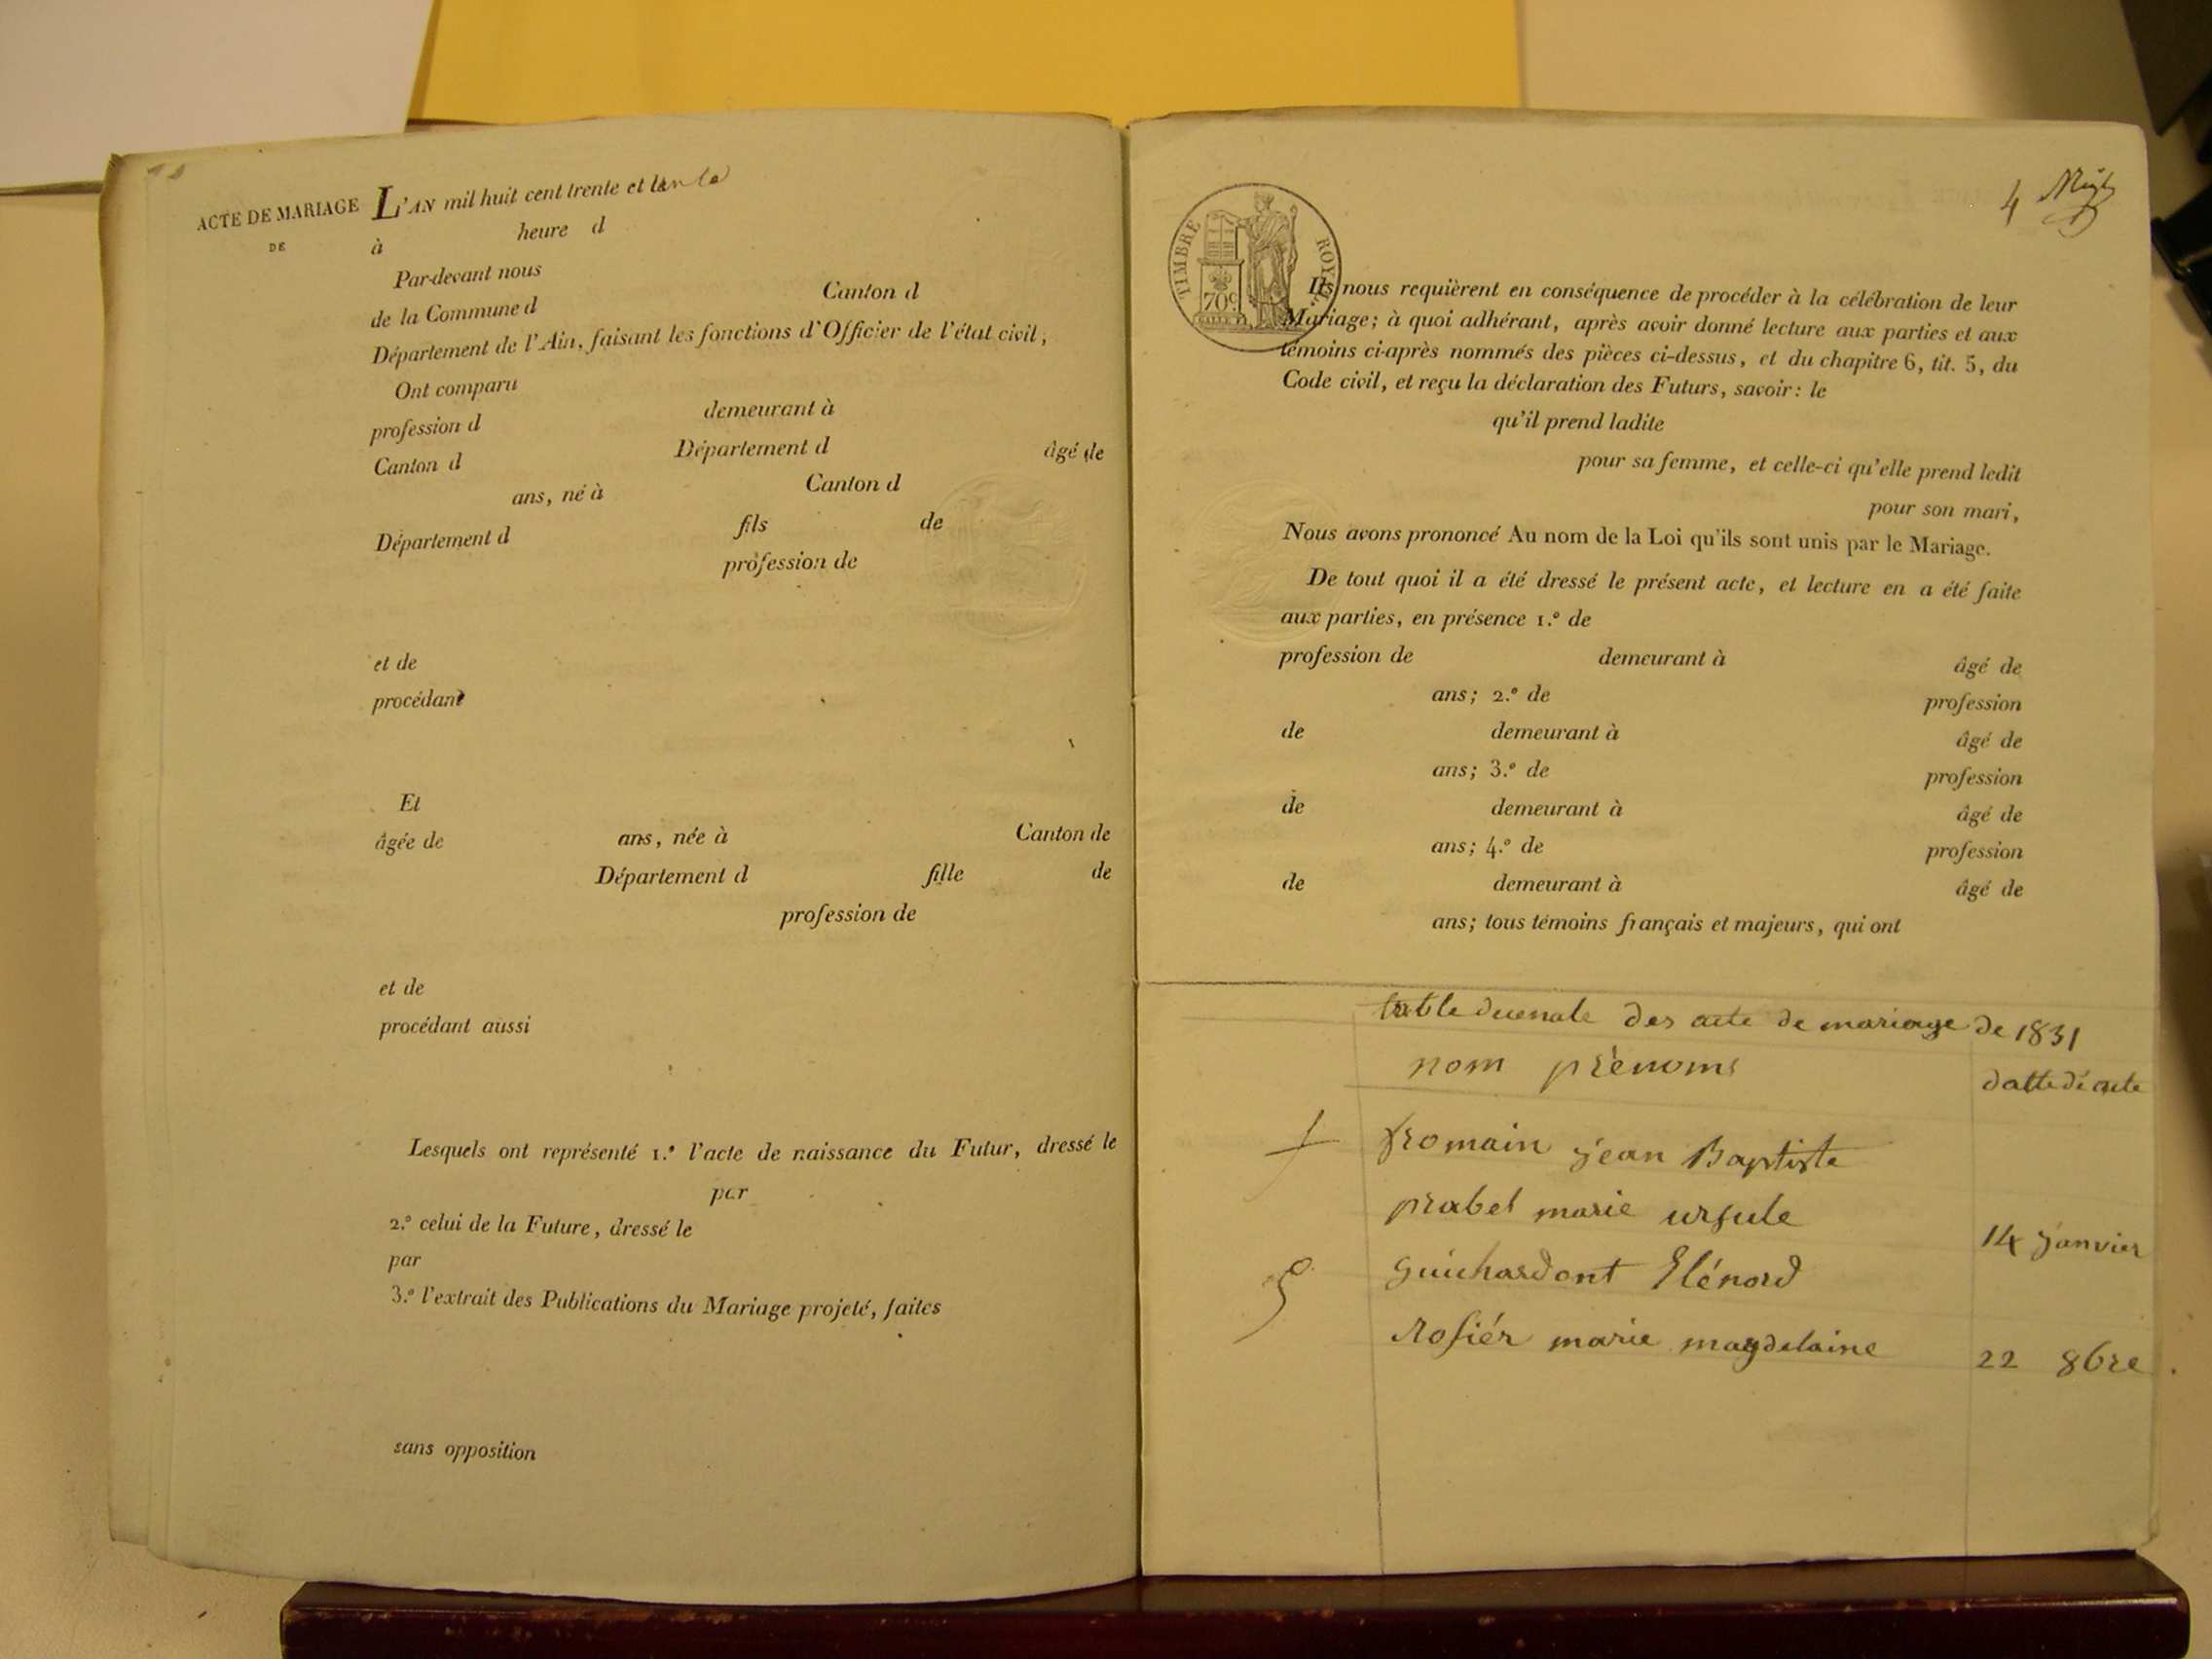 ACTE DE MARIAGE
DE
L'AN mil huit cent trente et un le
à heure d
Par-devant nous
de la Commune d Canton d
Département de l'Ain, faisant les fonctions d'Officier de l'état civil,
Ont comparu
profession d demeurant à
Canton d Département d âgé de
ans, né à Canton d
Département d fils de
profession de
et de
procédant
Et
âgée de ans, née à Canton de
Département d fille de
profession de
et de
procédant aussi
Lesquels ont représenté 1.º l'acte de naissance du Futur, dressé le
par
2.º celui de la Future, dressé le
par
3.º l'extrait des Publications du Mariage projeté, faites
sans opposition
4
TIMBRE ROYAL
70c
Ils nous requièrent en conséquence de procéder à la célébration de leur
Mariage; à quoi adhérant, après avoir donné lecture aux parties et aux
témoins ci-après nommés des pièces ci-dessus, et du chapitre 6, tit. 5, du
Code civil, et reçu la déclaration des Futurs, savoir: le
qu'il prend ladite
pour sa femme, et celle-ci qu'elle prend ledit
pour son mari,
Nous avons prononcé Au nom de la Loi qu'ils sont unis par le Mariage.
De tout quoi il a été dressé le présent acte, et lecture en a été faite
aux parties, en présence 1.º de
profession de demeurant à âgé de
ans; 2.º de profession
de demeurant à âgé de
ans; 3.º de profession
de demeurant à âgé de
ans; 4.º de profession
de demeurant à âgé de
ans; tous témoins français et majeurs, qui ont
table des acte de mariage de 1831
nom prénoms datte dé acte
fromain jean Baptiste
prabel marie ursule 14 janvier
guichardont Elénord
rosiér marie magdelaine 22 8bre